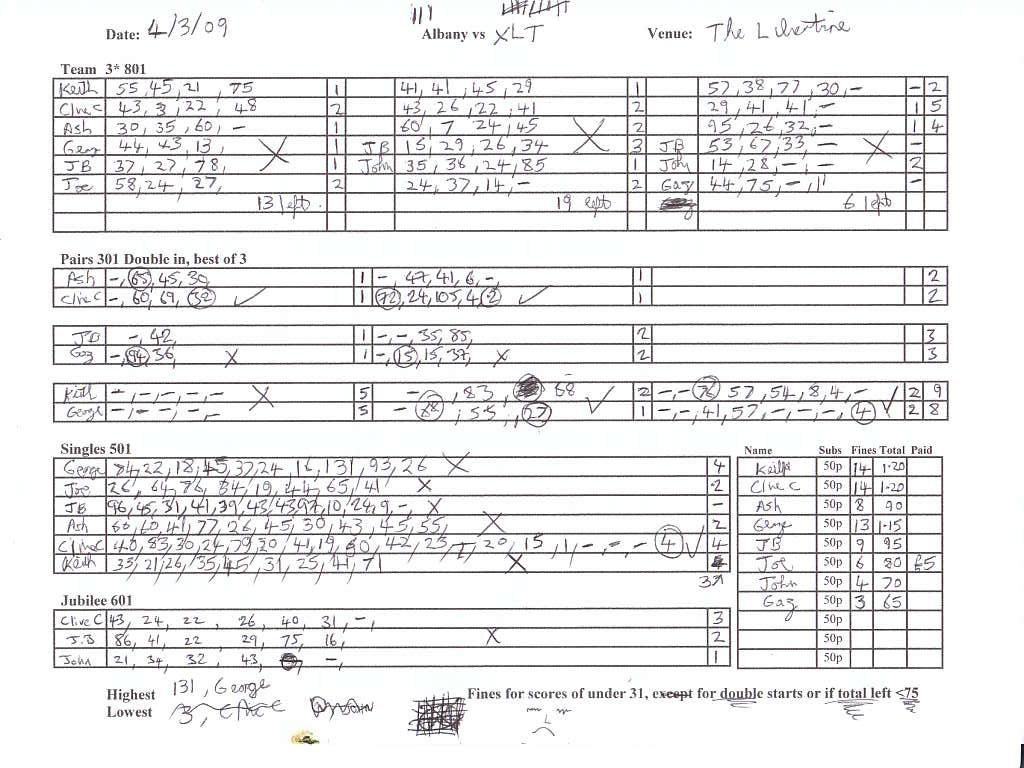 Date: 4/3/09 Albany vs XLT Venue: The Libertine
Team 3* 801
Keith 55, 45, 21, 75 1 41, 41, 45, 29 1 57, 38, 77, 30, - - 2
Clive C 43, 3, 22, 48 2 43, 26, 22, 41 2 29, 41, 41, - 1 5
Ash 30, 35, 60, - 1 60, 7, 24, 45 2 95, 26, 32, - 1 4
Geog 44, 43, 13, X 1 JB 15, 29, 26, 34 X 3 JB 53, 67, 33, - X -
JB 37, 27, 78, 1 John 35, 36, 24, 85 1 John 14, 28, -, - 2
Joe 58, 24, 27, 2 24, 37, 14, - 2 Gaz 44, 75, -, 11 -
13 left. 19 left 6 left
Pairs 301 Double in, best of 3
Ash -, 65, 45, 30 1 -, 47, 41, 6, - 1 2
Clive C -, 60, 69, 32 ✓ 1 72, 24, 105, 4, 2 ✓ 1 2
JB -, 42, 1 -, -, 35, 85, 2 3
Gaz -, 94, 36, X 1 -, 15, 15, 37, X 2 3
Keith -, -, -, -, - X 5 -, 83, 68 ✓ 2 -, -, 76, 57, 54, 8, 4, - ✓ 2 9
George -, -, -, -, - 5 - 88, 55, 67 1 -, -, 41, 57, -, -, -, 4 2 8
Singles 501
George 84, 22, 18, 45, 37, 24, 16, 131, 93, 26 X 4
Joe 26, 64, 76, 34, 19, 44, 65, 41 X 2
JB 96, 45, 31, 41, 39, 43, 43, 97, 10, 24, 9, -, X -
Ash 60, 60, 41, 77, 26, 45, 30, 43, 45, 55, X 2
Clive C 40, 83, 30, 24, 79, 20, 41, 19, 60, 42, 23, 20, 15, 1, -, -, - 4 ✓ 4
Keith 33, 21, 26, 35, 45, 31, 25, 41, 71 X
Name Subs Fines Total Paid
Keith 50p 14 1.20
Clive C 50p 14 1.20
Ash 50p 8 90
George 50p 13 1.15
JB 50p 9 95
Joe 50p 6 80 £5
John 50p 4 70
Gaz 50p 3 65
50p
50p
50p
Jubilee 601
Clive C 43, 24, 22, 26, 40, 31, -, 3
J.B 86, 41, 22, 29, 75, 16, X 2
John 21, 34, 32, 43, -, 1
Highest 131, George
Lowest 3, Clive
Fines for scores of under 31, except for double starts or if total left <75